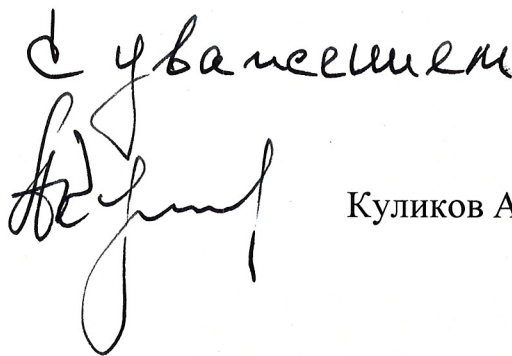 С уважением
Куликов А